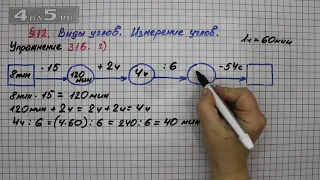 4DA5.RU
§12. Виды углов. Измерение углов.
Упражнение 316. 2)
1ч = 60мин
· 15
+ 2ч
: 6
- 54с
8мин
120 мин
4ч
8мин · 15 = 120мин
120мин + 2ч = 2ч + 2ч = 4ч
4ч : 6 = (4·60) : 6 = 240 : 6 = 40 мин